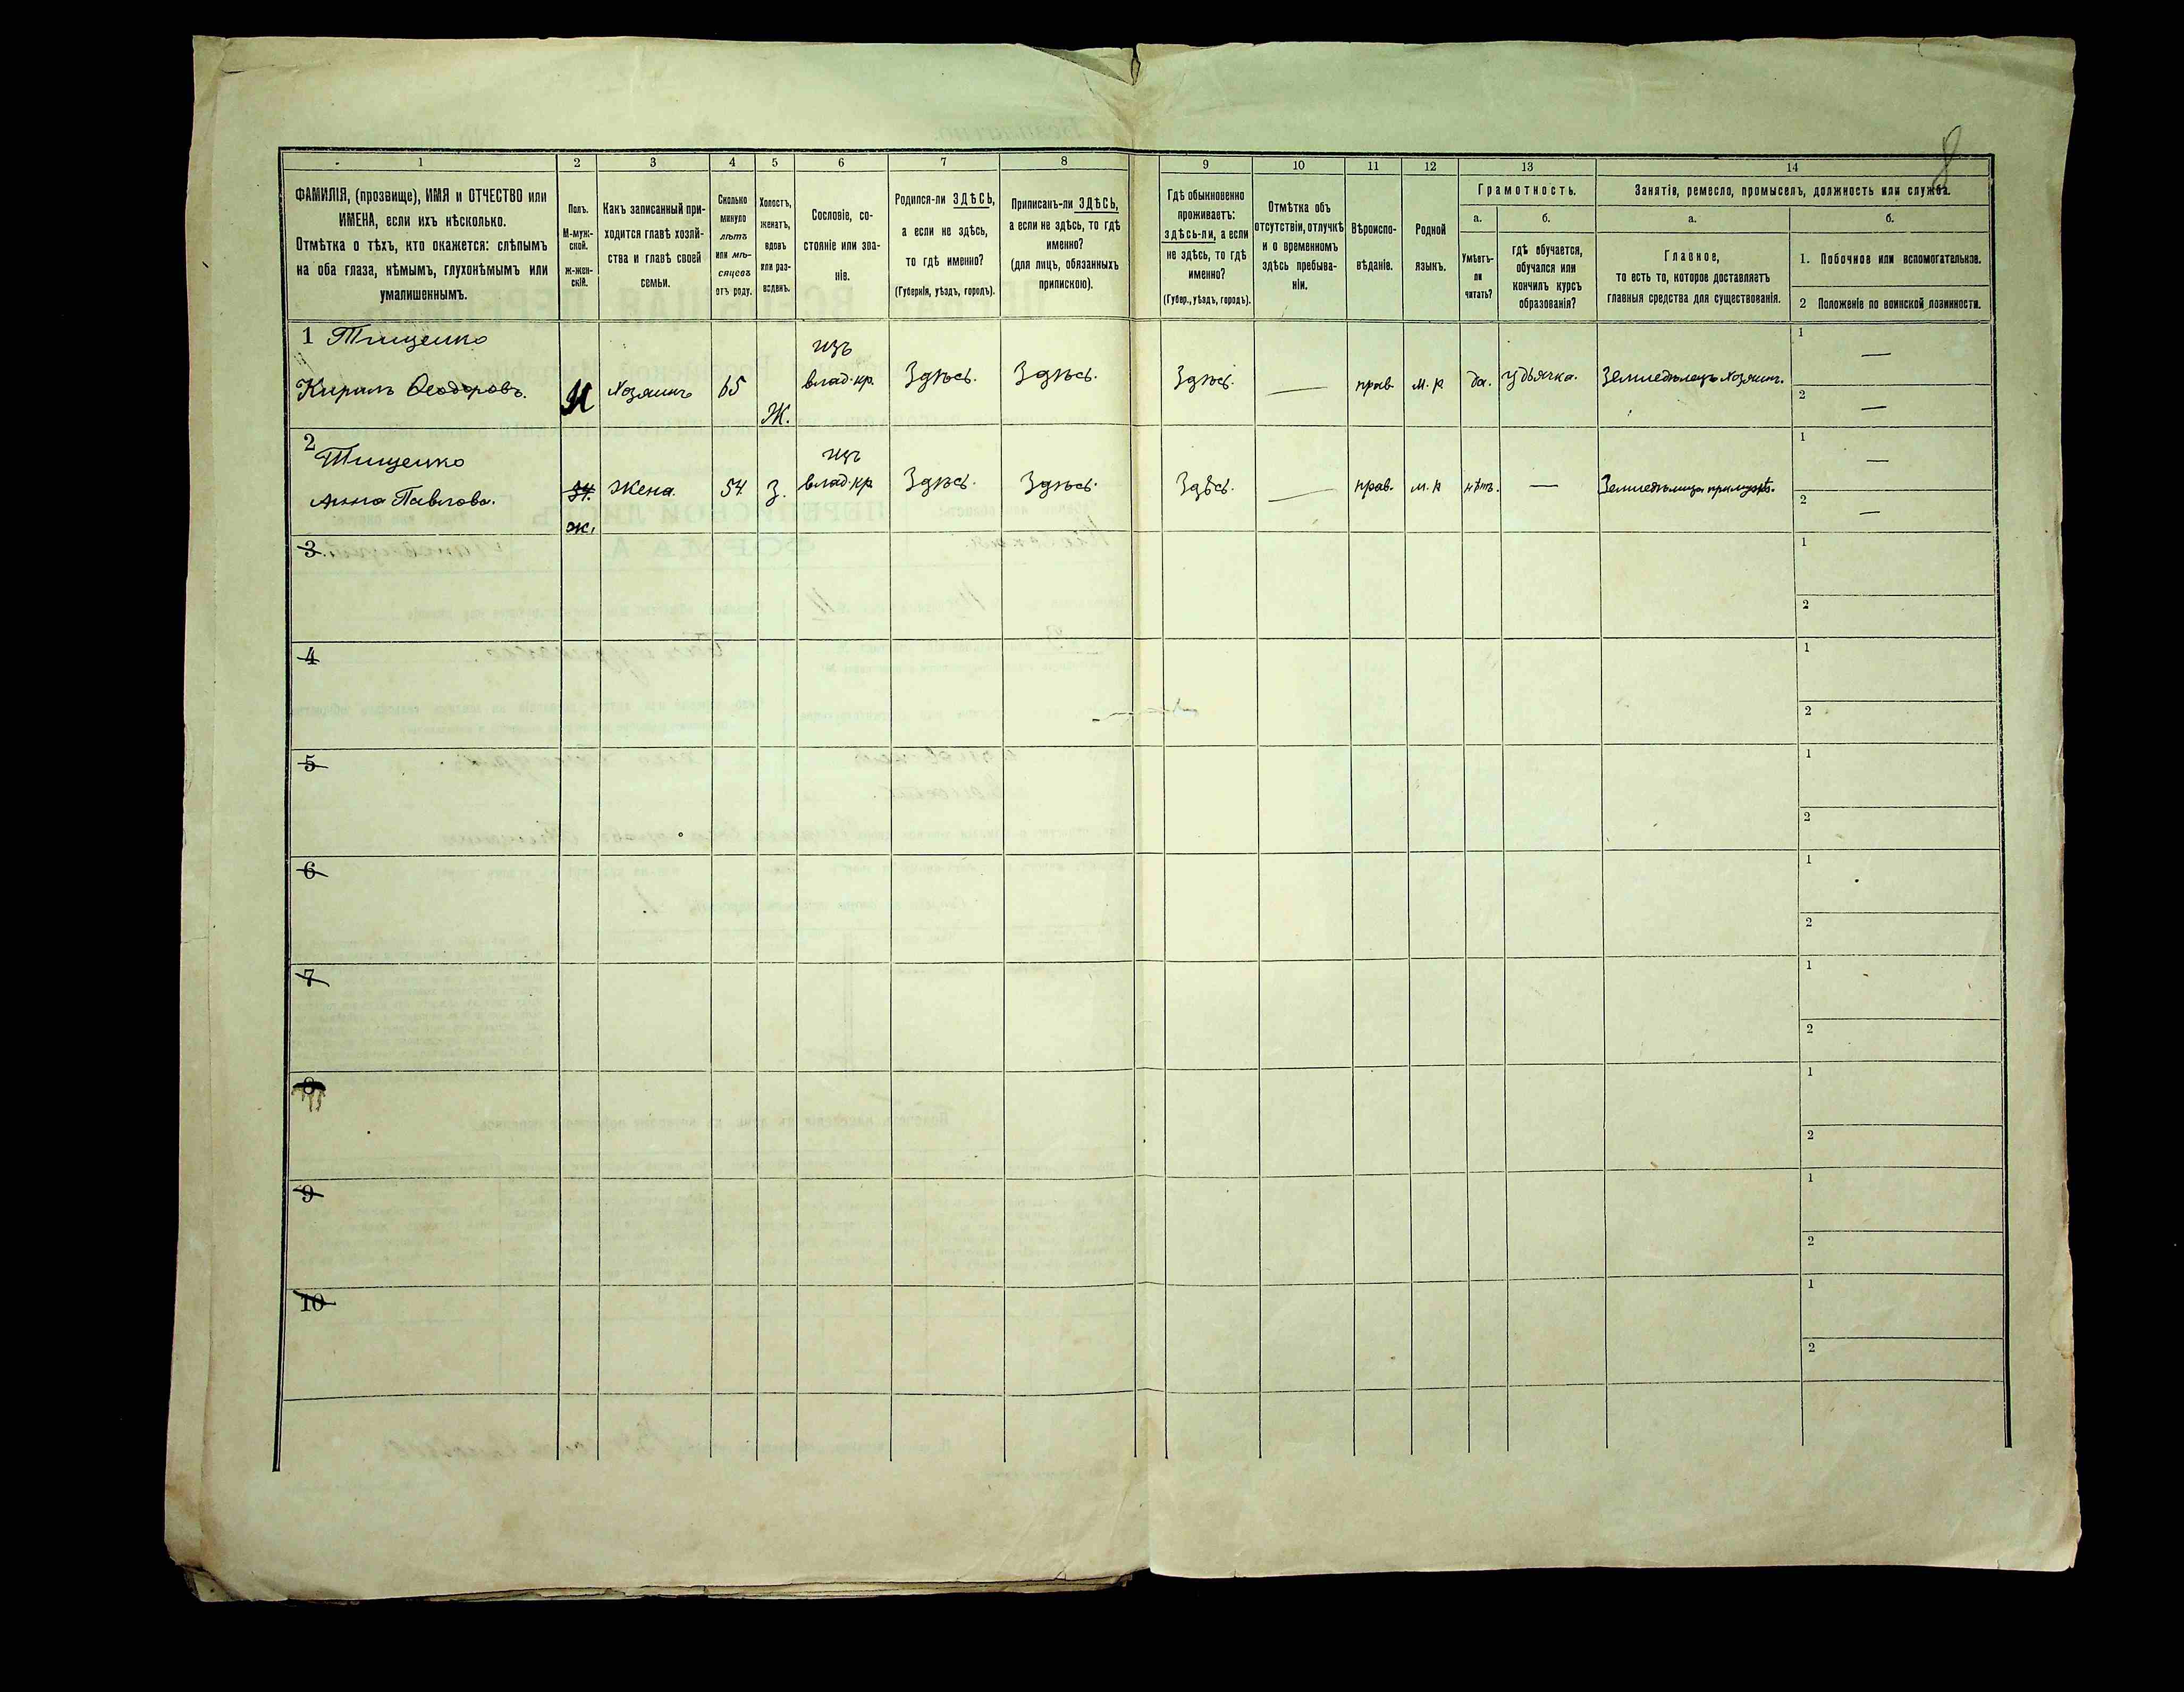 8
1 2 3 4 5 6 7 8 9 10 11 12 13 14
ФАМИЛІЯ, (прозвище), ИМЯ и ОТЧЕСТВО или
ИМЕНА, если ихъ нѣсколько.
Отмѣтка о тѣхъ, кто окажется: слѣпымъ
на оба глаза, нѣмымъ, глухонѣмымъ или
умалишеннымъ.
Полъ.
М-муж-
ской.
ж-жен-
скій.
Какъ записанный при-
ходится главѣ хозяй-
ства и главѣ своей
семьи.
Сколько
минуло
лѣтъ
или мѣ-
сяцевъ
отъ роду.
Холостъ,
женатъ,
вдовъ
или раз-
веденъ.
Сословіе, со-
стояніе или зва-
ніе.
Родился-ли ЗДѢСЬ,
а если не здѣсь,
то гдѣ именно?
(Губернія, уѣздъ, городъ).
Приписанъ-ли ЗДѢСЬ,
а если не здѣсь, то гдѣ
именно?
(для лицъ, обязанныхъ
припискою).
Гдѣ обыкновенно
проживаетъ:
здѣсь-ли, а если
не здѣсь, то гдѣ
именно?
(Губер., уѣздъ, городъ).
Отмѣтка объ
отсутствіи, отлучкѣ
и о временномъ
здѣсь пребыва-
ніи.
Вѣроиспо-
вѣданіе.
Родной
языкъ.
Грамотность.
а.
Умѣетъ-
ли
читать?
б.
гдѣ обучается,
обучался или
кончилъ курсъ
образованія?
Занятія, ремесло, промыселъ, должность или служба.
а.
Главное,
то есть то, которое доставляетъ
главныя средства для существованія.
б.
1. Побочное или вспомогательное.
2 Положеніе по воинской повинности.
1 Тищенко
Кирилъ Ѳеодоровъ.
М
Хозяинъ
65
Ж.
изъ
влад. кр.
Здѣсь.
Здѣсь.
Здѣсь.
—
прав.
м. р
да.
у дьячка.
Земледѣлецъ хозяинъ.
1 —
2 —
2 Тищенко
Анна Павлова.
54.
ж.
Жена.
54
З.
изъ
влад. кр
Здѣсь.
Здѣсь.
Здѣсь.
—
прав.
м. р
нѣтъ.
—
Земледѣлица при мужѣ.
1 —
2 —
3
1
2
4
1
2
5
1
2
6
1
2
7
1
2
8
1
2
9
1
2
10
1
2